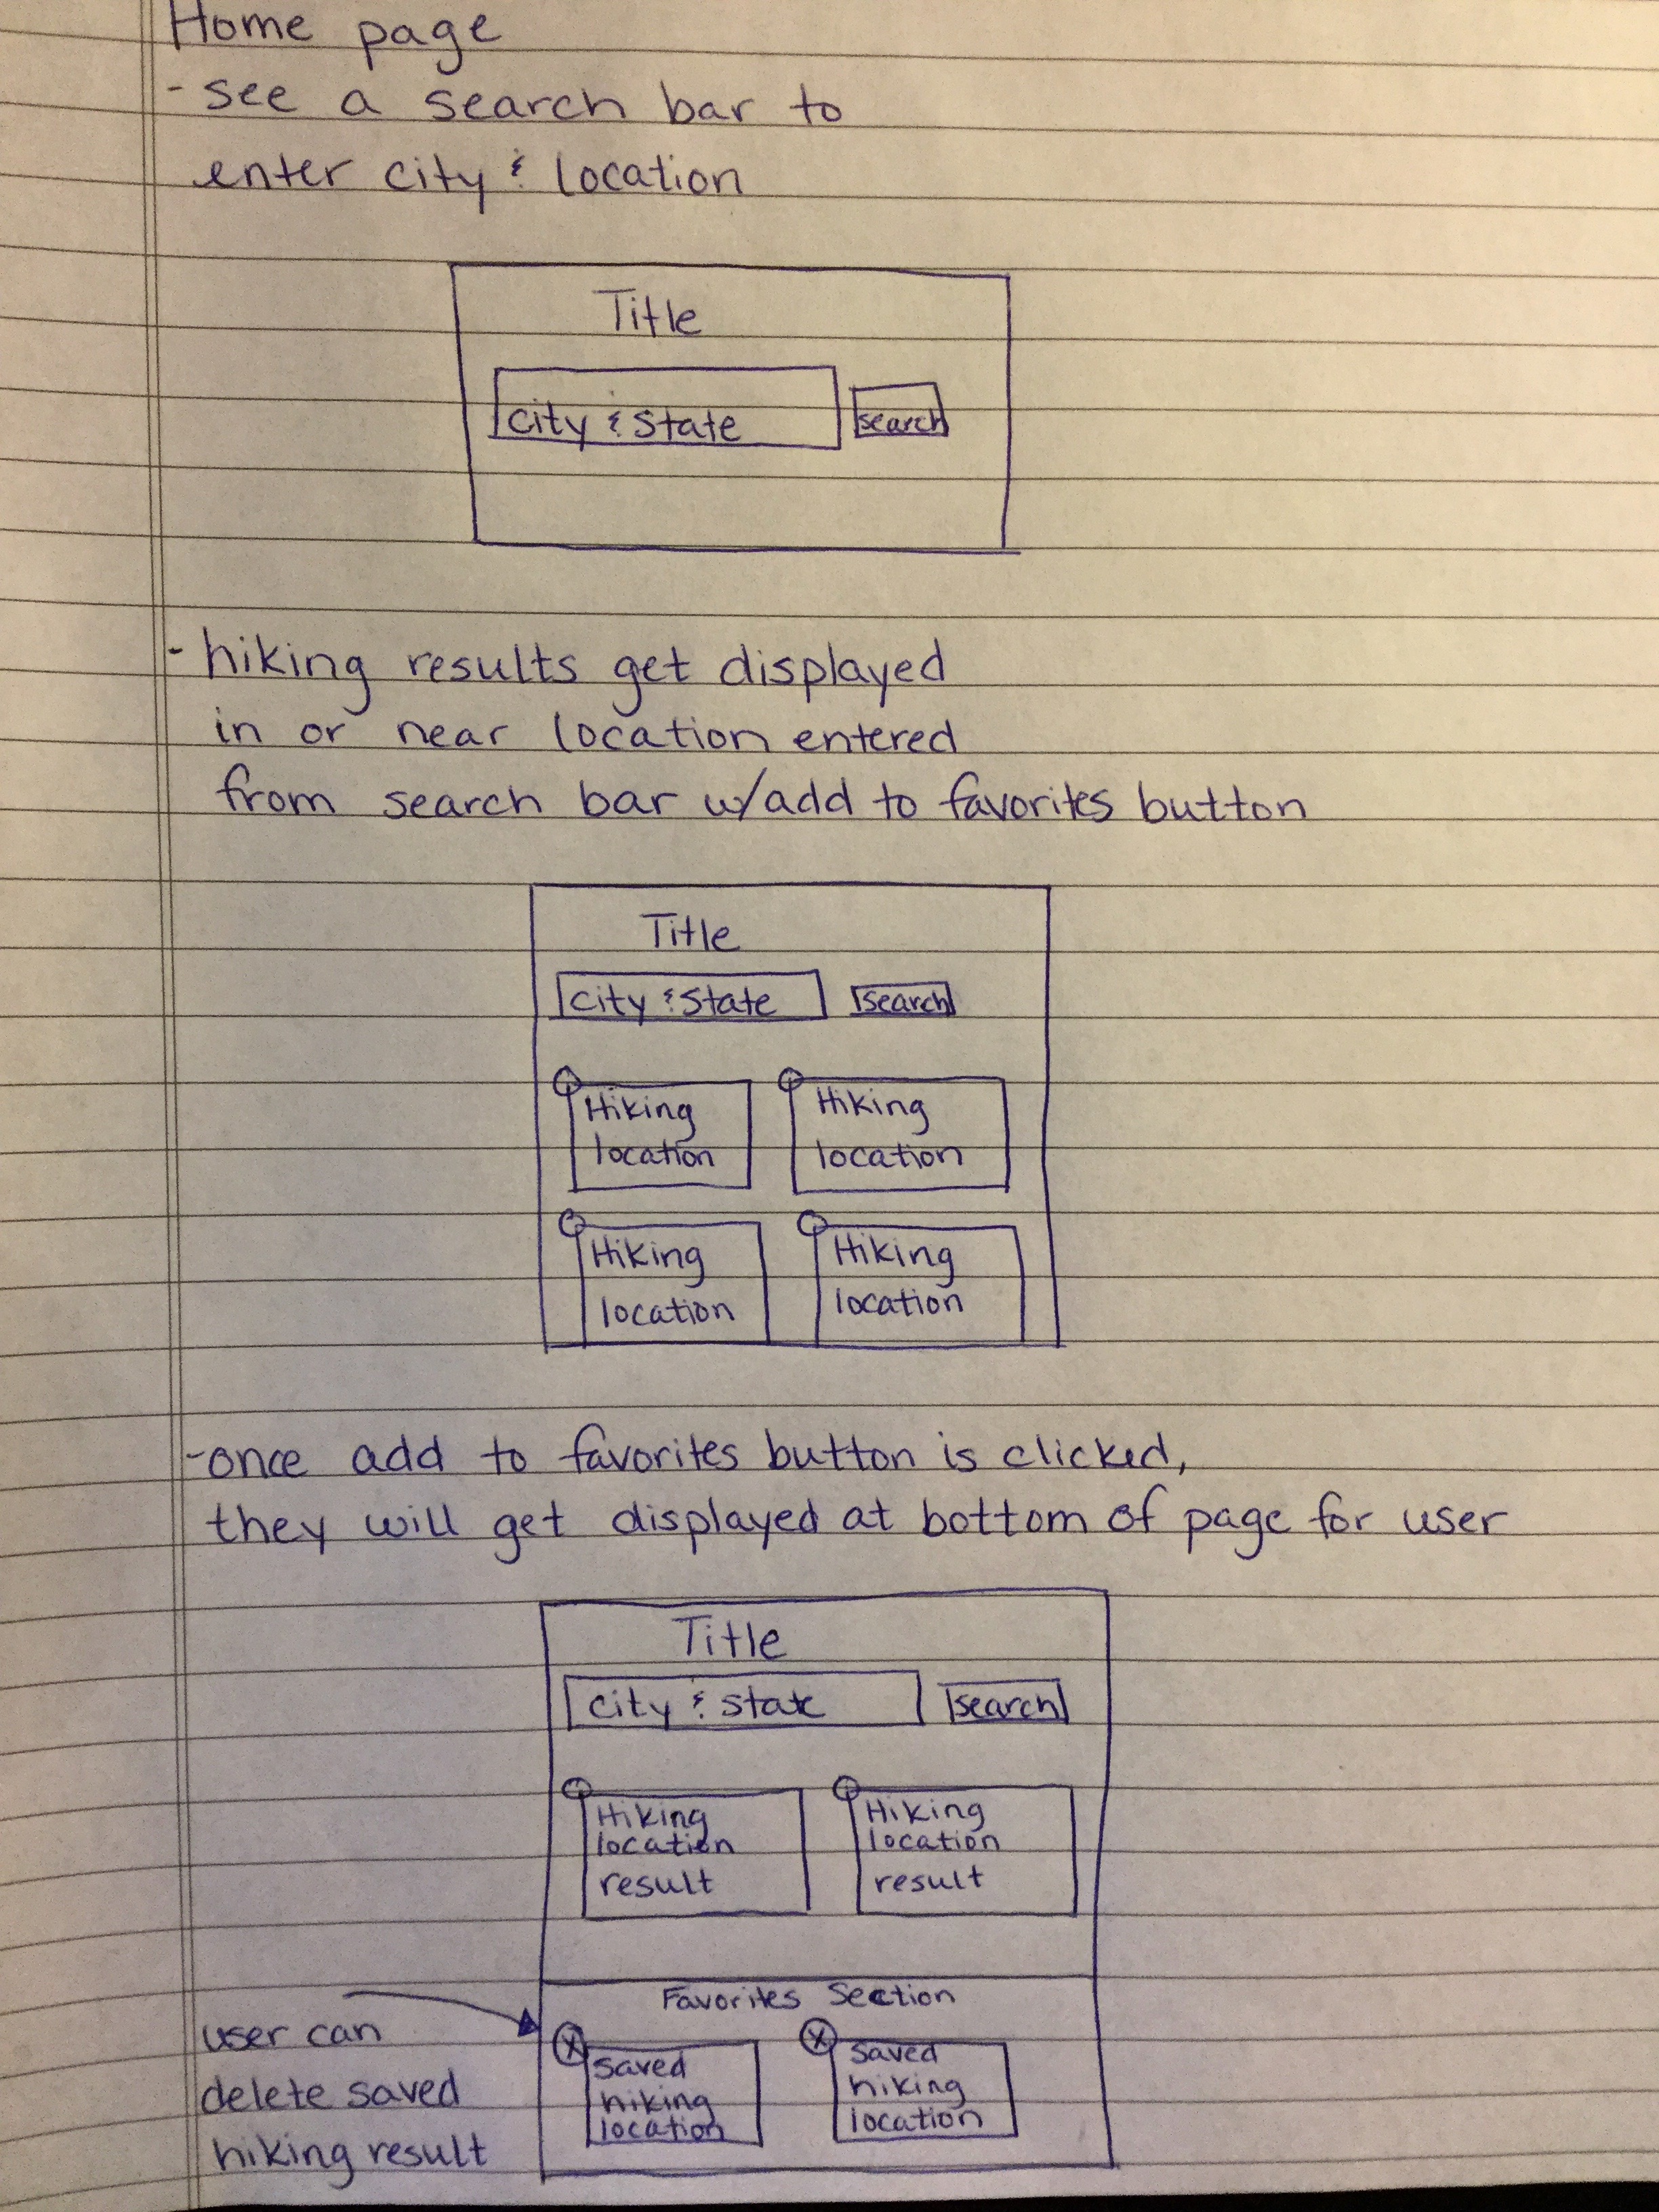 Home page
- see a search bar to
enter city & location
Title
city & state
search
- hiking results get displayed
in or near location entered
from search bar w/add to favorites button
Title
city & state
search
Hiking
location
Hiking
location
Hiking
location
Hiking
location
- once add to favorites button is clicked,
they will get displayed at bottom of page for user
Title
city & state
search
Hiking
location
result
Hiking
location
result
Favorites Section
user can
delete saved
hiking result
X
saved
hiking
location
X
saved
hiking
location